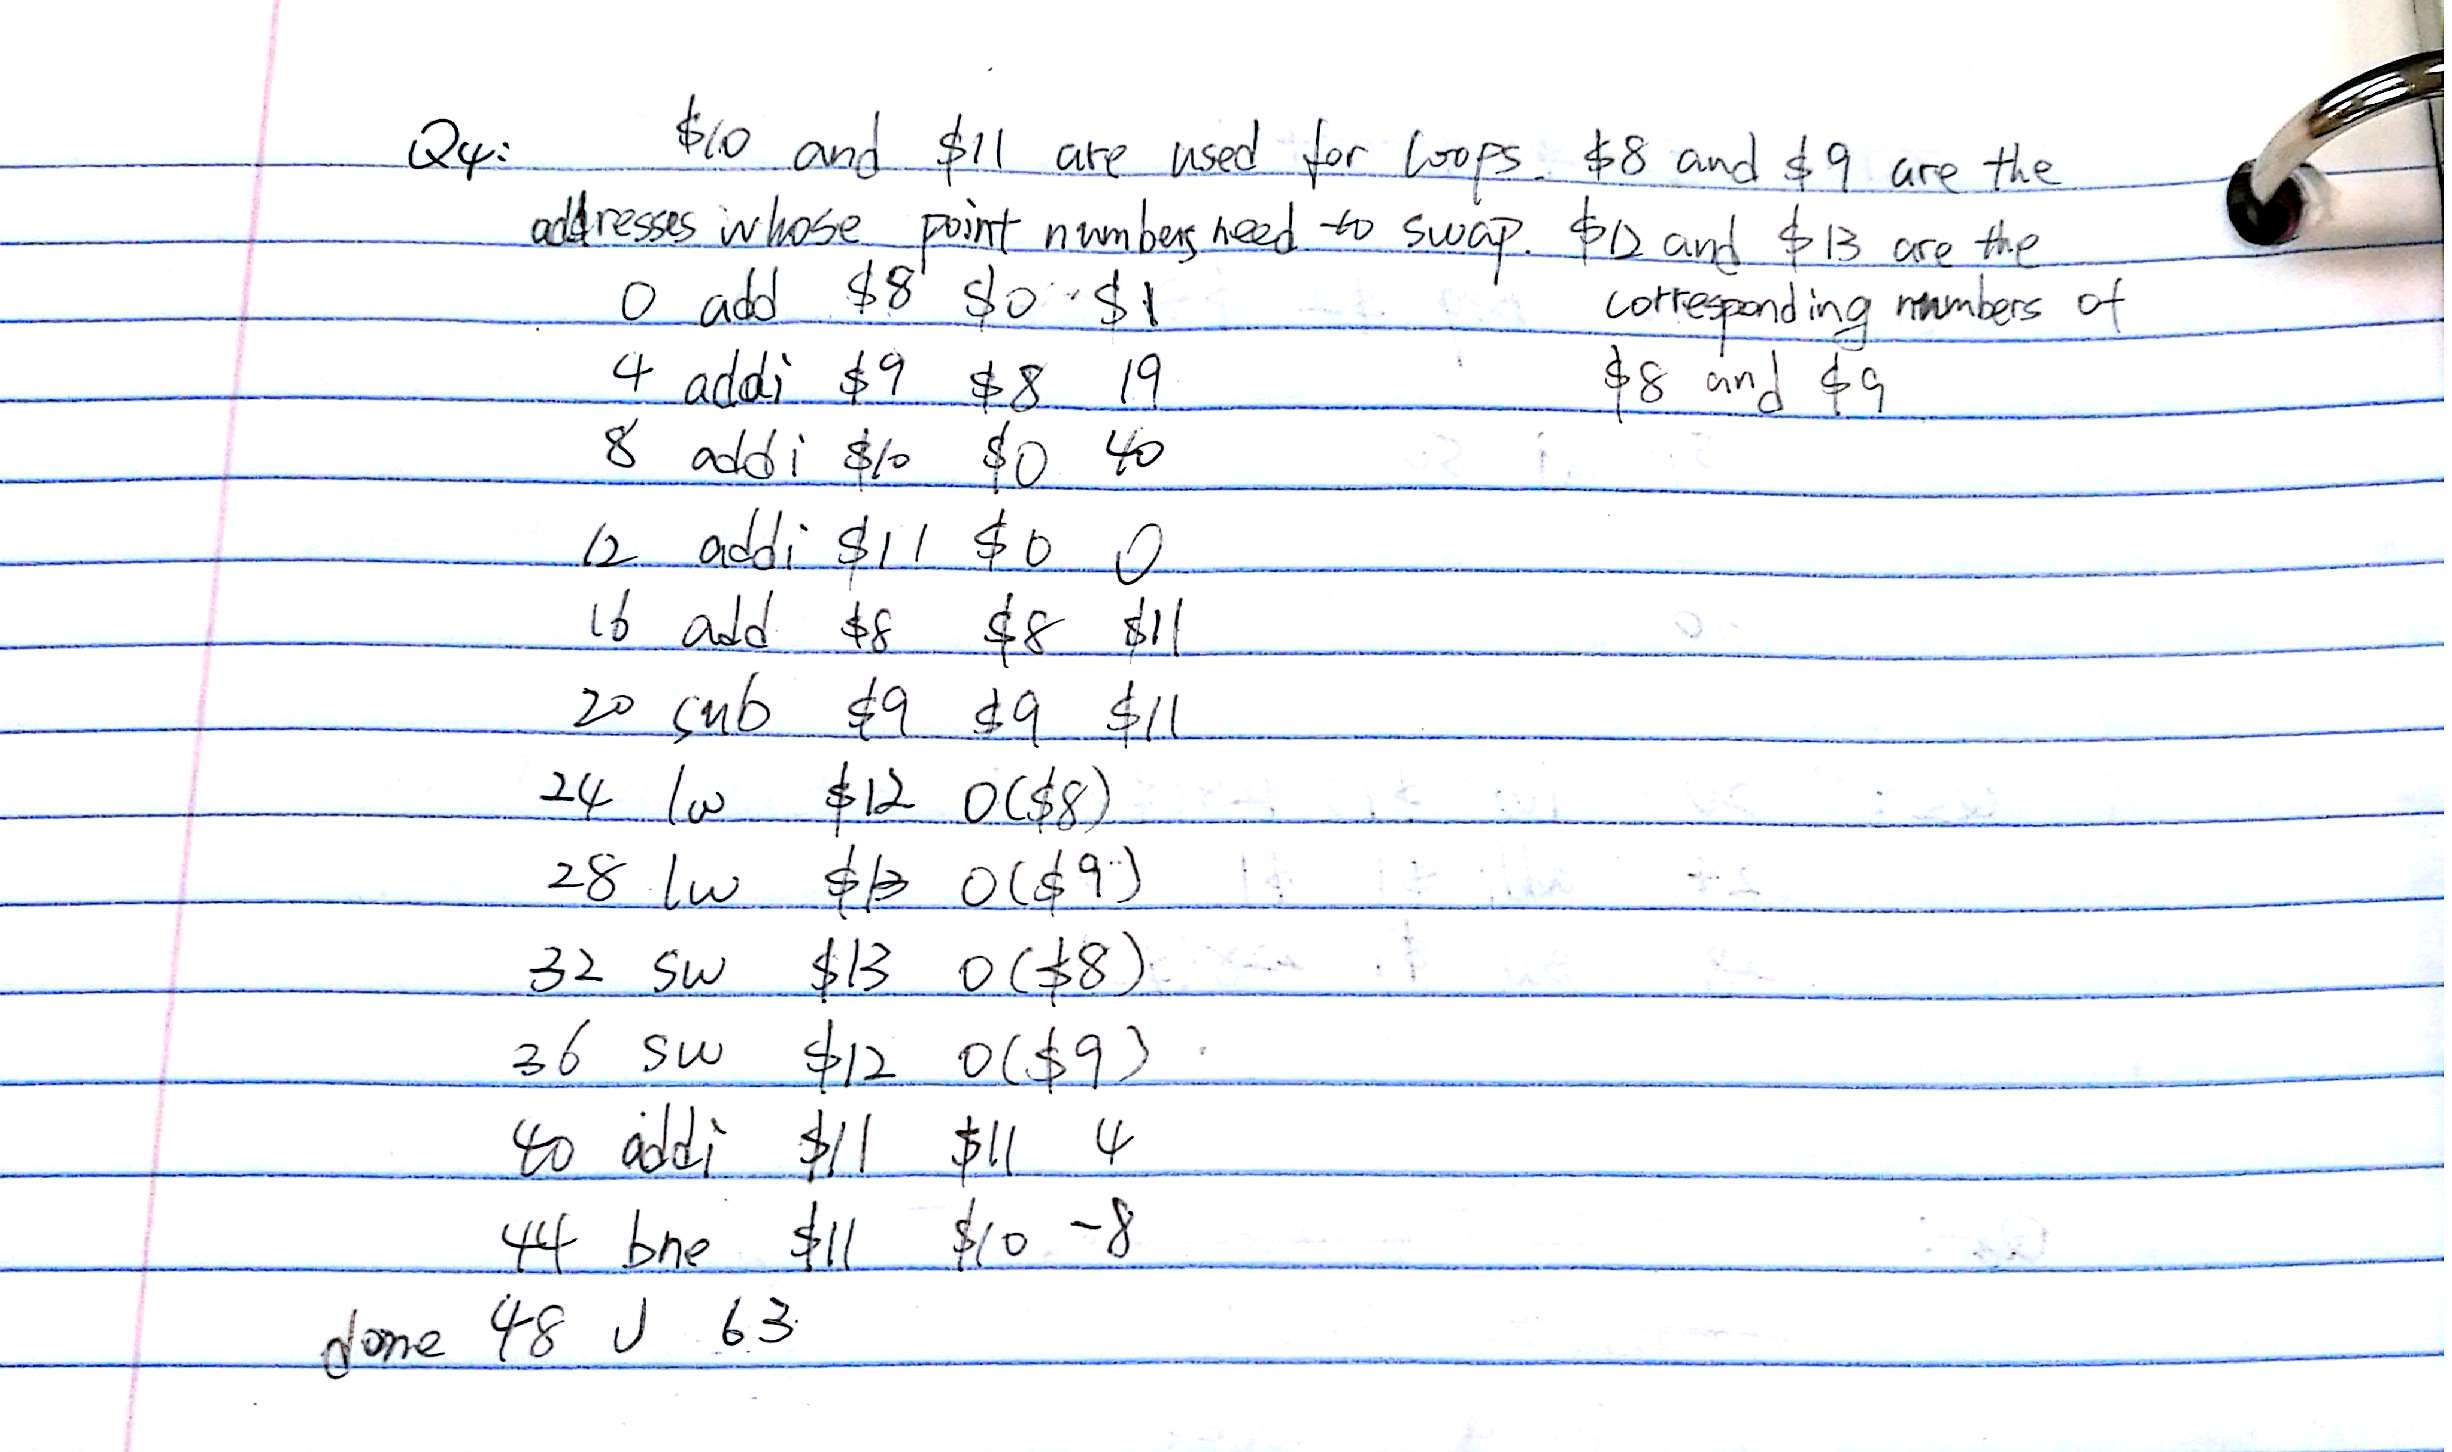 Q4: $10 and $11 are used for loops. $8 and $9 are the
addresses whose point numbers need to swap. $12 and $13 are the
corresponding numbers of
$8 and $9
0 add $8 $0 $1
4 addi $9 $8 19
8 addi $10 $0 40
12 addi $11 $0 0
16 add $8 $8 $11
20 sub $9 $9 $11
24 lw $12 0($8)
28 lw $13 0($9)
32 sw $13 0($8)
36 sw $12 0($9)
40 addi $11 $11 4
44 bne $11 $10 -8
done 48 J 63